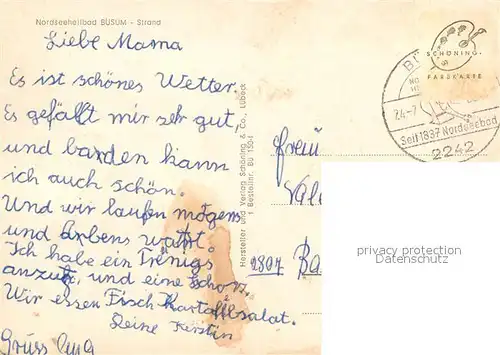 Nordseeheilbad BÜSUM - Strand
Liebe Mama
Es ist schönes Wetter.
Es gefällt mir sehr gut,
und barden kann
ich auch schön.
Und wir laufen mogens
und arbens watt.
Ich habe ein Trenigs
anzug, und eine Schorz.
Wir essen Fisch Kartoffelsalat.
Deine Kerstin
Gruss
Hersteller und Verlag Schöning & Co., Lübeck
Bestellnr. Bü 1504
SCHÖNING
FARBKARTE
24.-7
Seit 1837 Nordseebad
2242
Frau
2807 Ba
privacy protection
Datenschutz